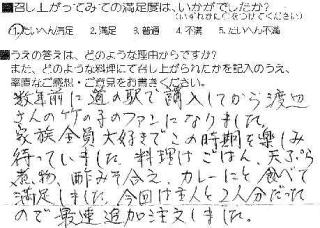 ■召し上がってみての満足度は、いかがでしたか?
(いずれかに○をつけてください)
①.たいへん満足 2.満足 3.普通 4.不満 5.たいへん不満
■うえの答えは、どのような理由からですか?
また、どのような料理にて召し上がられたかを記入のうえ、
率直なご感想・ご意見をお書きください。
数年前に道の駅で購入してから渡辺
さんの竹の子のファンになりました。
家族全員大好きでこの時期を楽しみ
待っていました。料理はごはん、天ぷら
煮物、酢みそ合え、カレーにと食べて
満足しました。今回は主人と2人分だった
ので最速追加注文しました。